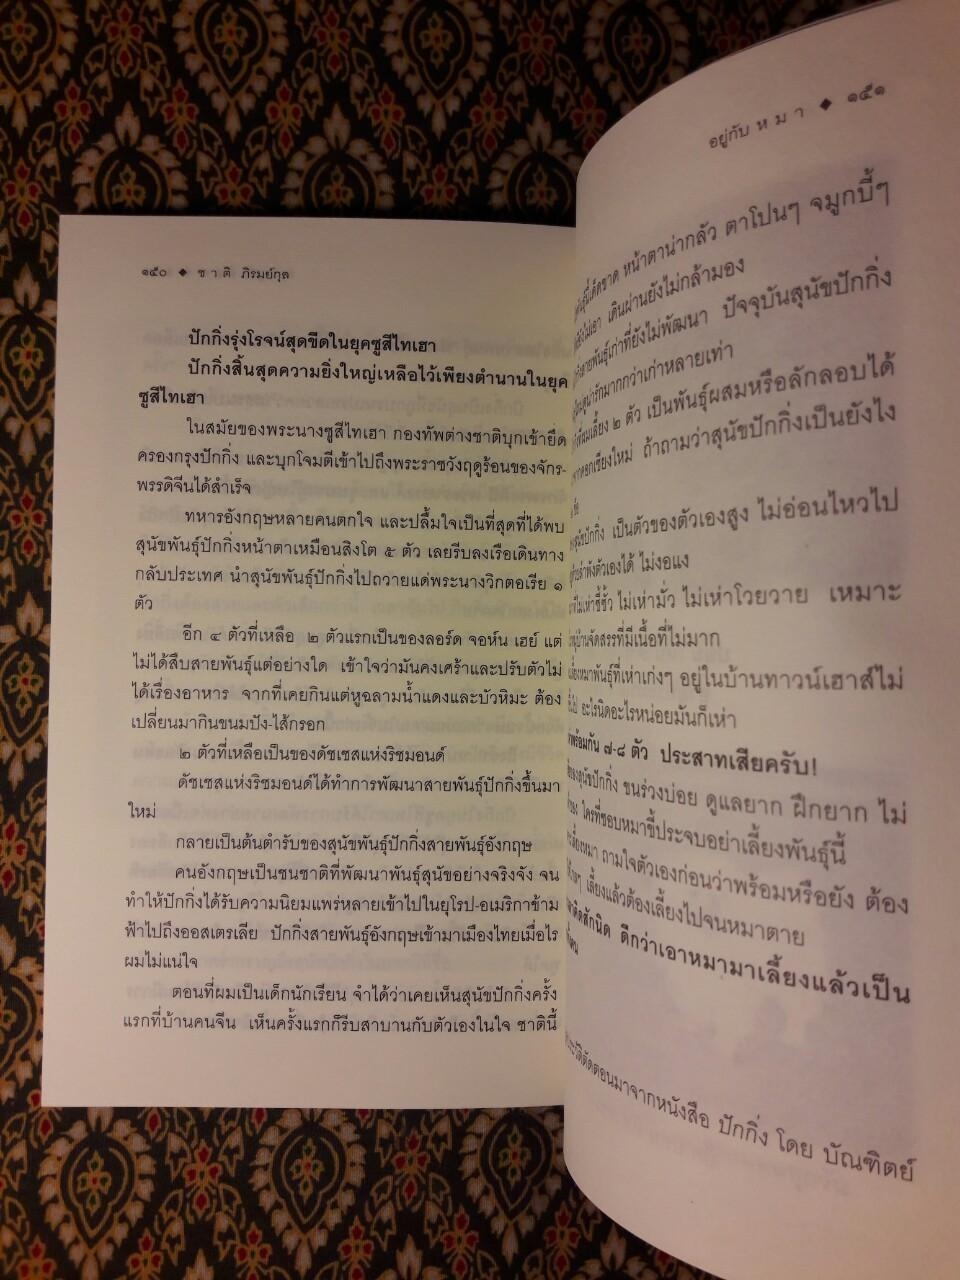 ๑๕๐ ◆ ชาติ ภิรมย์กุล
ปักกิ่งรุ่งโรจน์สุดขีดในยุคซูสีไทเฮา
ปักกิ่งสิ้นสุดความยิ่งใหญ่เหลือไว้เพียงตำนานในยุค
ซูสีไทเฮา
ในสมัยของพระนางซูสีไทเฮา กองทัพต่างชาติบุกเข้ายึด
ครองกรุงปักกิ่ง และบุกโจมตีเข้าไปถึงพระราชวังฤดูร้อนของจักร-
พรรดิจีนได้สำเร็จ
ทหารอังกฤษหลายคนตกใจ และปลื้มใจเป็นที่สุดที่ได้พบ
สุนัขพันธุ์ปักกิ่งหน้าตาเหมือนสิงโต ๕ ตัว เลยรีบลงเรือเดินทาง
กลับประเทศ นำสุนัขพันธุ์ปักกิ่งไปถวายแด่พระนางวิกตอเรีย ๑
ตัว
อีก ๔ ตัวที่เหลือ ๒ ตัวแรกเป็นของลอร์ด จอห์น เฮย์ แต่
ไม่ได้สืบสายพันธุ์แต่อย่างใด เข้าใจว่ามันคงเศร้าและปรับตัวไม่
ได้เรื่องอาหาร จากที่เคยกินแต่หูฉลามน้ำแดงและบัวหิมะ ต้อง
เปลี่ยนมากินขนมปัง-ไส้กรอก
๒ ตัวที่เหลือเป็นของดัชเชสแห่งริชมอนด์
ดัชเชสแห่งริชมอนด์ได้ทำการพัฒนาสายพันธุ์ปักกิ่งขึ้นมา
ใหม่
กลายเป็นต้นตำรับของสุนัขพันธุ์ปักกิ่งสายพันธุ์อังกฤษ
คนอังกฤษเป็นชนชาติที่พัฒนาพันธุ์สุนัขอย่างจริงจัง จน
ทำให้ปักกิ่งได้รับความนิยมแพร่หลายเข้าไปในยุโรป-อเมริกาข้าม
ฟ้าไปถึงออสเตรเลีย ปักกิ่งสายพันธุ์อังกฤษเข้ามาเมืองไทยเมื่อไร
ผมไม่แน่ใจ
ตอนที่ผมเป็นเด็กนักเรียน จำได้ว่าเคยเห็นสุนัขปักกิ่งครั้ง
แรกที่บ้านคนจีน เห็นครั้งแรกก็รีบสาบานกับตัวเองในใจ ชาตินี้
อยู่กับหมา ◆ ๑๕๑
หน้าตาน่ากลัว ตาโปนๆ จมูกบี้ๆ
เดินผ่านยังไม่กล้ามอง
สายพันธุ์เก่าที่ยังไม่พัฒนา ปัจจุบันสุนัขปักกิ่ง
ดูน่ารักมากกว่าเก่าหลายเท่า
เลี้ยง ๒ ตัว เป็นพันธุ์ผสมหรือลักลอบได้
เชียงใหม่ ถ้าถามว่าสุนัขปักกิ่งเป็นยังไง
สุนัขปักกิ่ง เป็นตัวของตัวเองสูง ไม่อ่อนไหวไป
ลำพังตัวเองได้ ไม่งอแง
ไม่เห่าซี้ซั้ว ไม่เห่ามั่ว ไม่เห่าโวยวาย เหมาะ
บ้านจัดสรรที่มีเนื้อที่ไม่มาก
หมาพันธุ์ที่เห่าเก่งๆ อยู่ในบ้านทาวน์เฮาส์ไม่
อะไรนิดอะไรหน่อยมันก็เห่า
พร้อมกัน ๗-๘ ตัว ประสาทเสียครับ!
ของสุนัขปักกิ่ง ขนร่วงบ่อย ดูแลยาก ฝึกยาก ไม่
ใครที่ชอบหมาขี้ประจบอย่าเลี้ยงพันธุ์นี้
เลี้ยงหมา ถามใจตัวเองก่อนว่าพร้อมหรือยัง ต้อง
เลี้ยงแล้วต้องเลี้ยงไปจนหมาตาย
คิดสักนิด ดีกว่าเอาหมามาเลี้ยงแล้วเป็น
ตัดตอนมาจากหนังสือ ปักกิ่ง โดย บัณฑิตย์